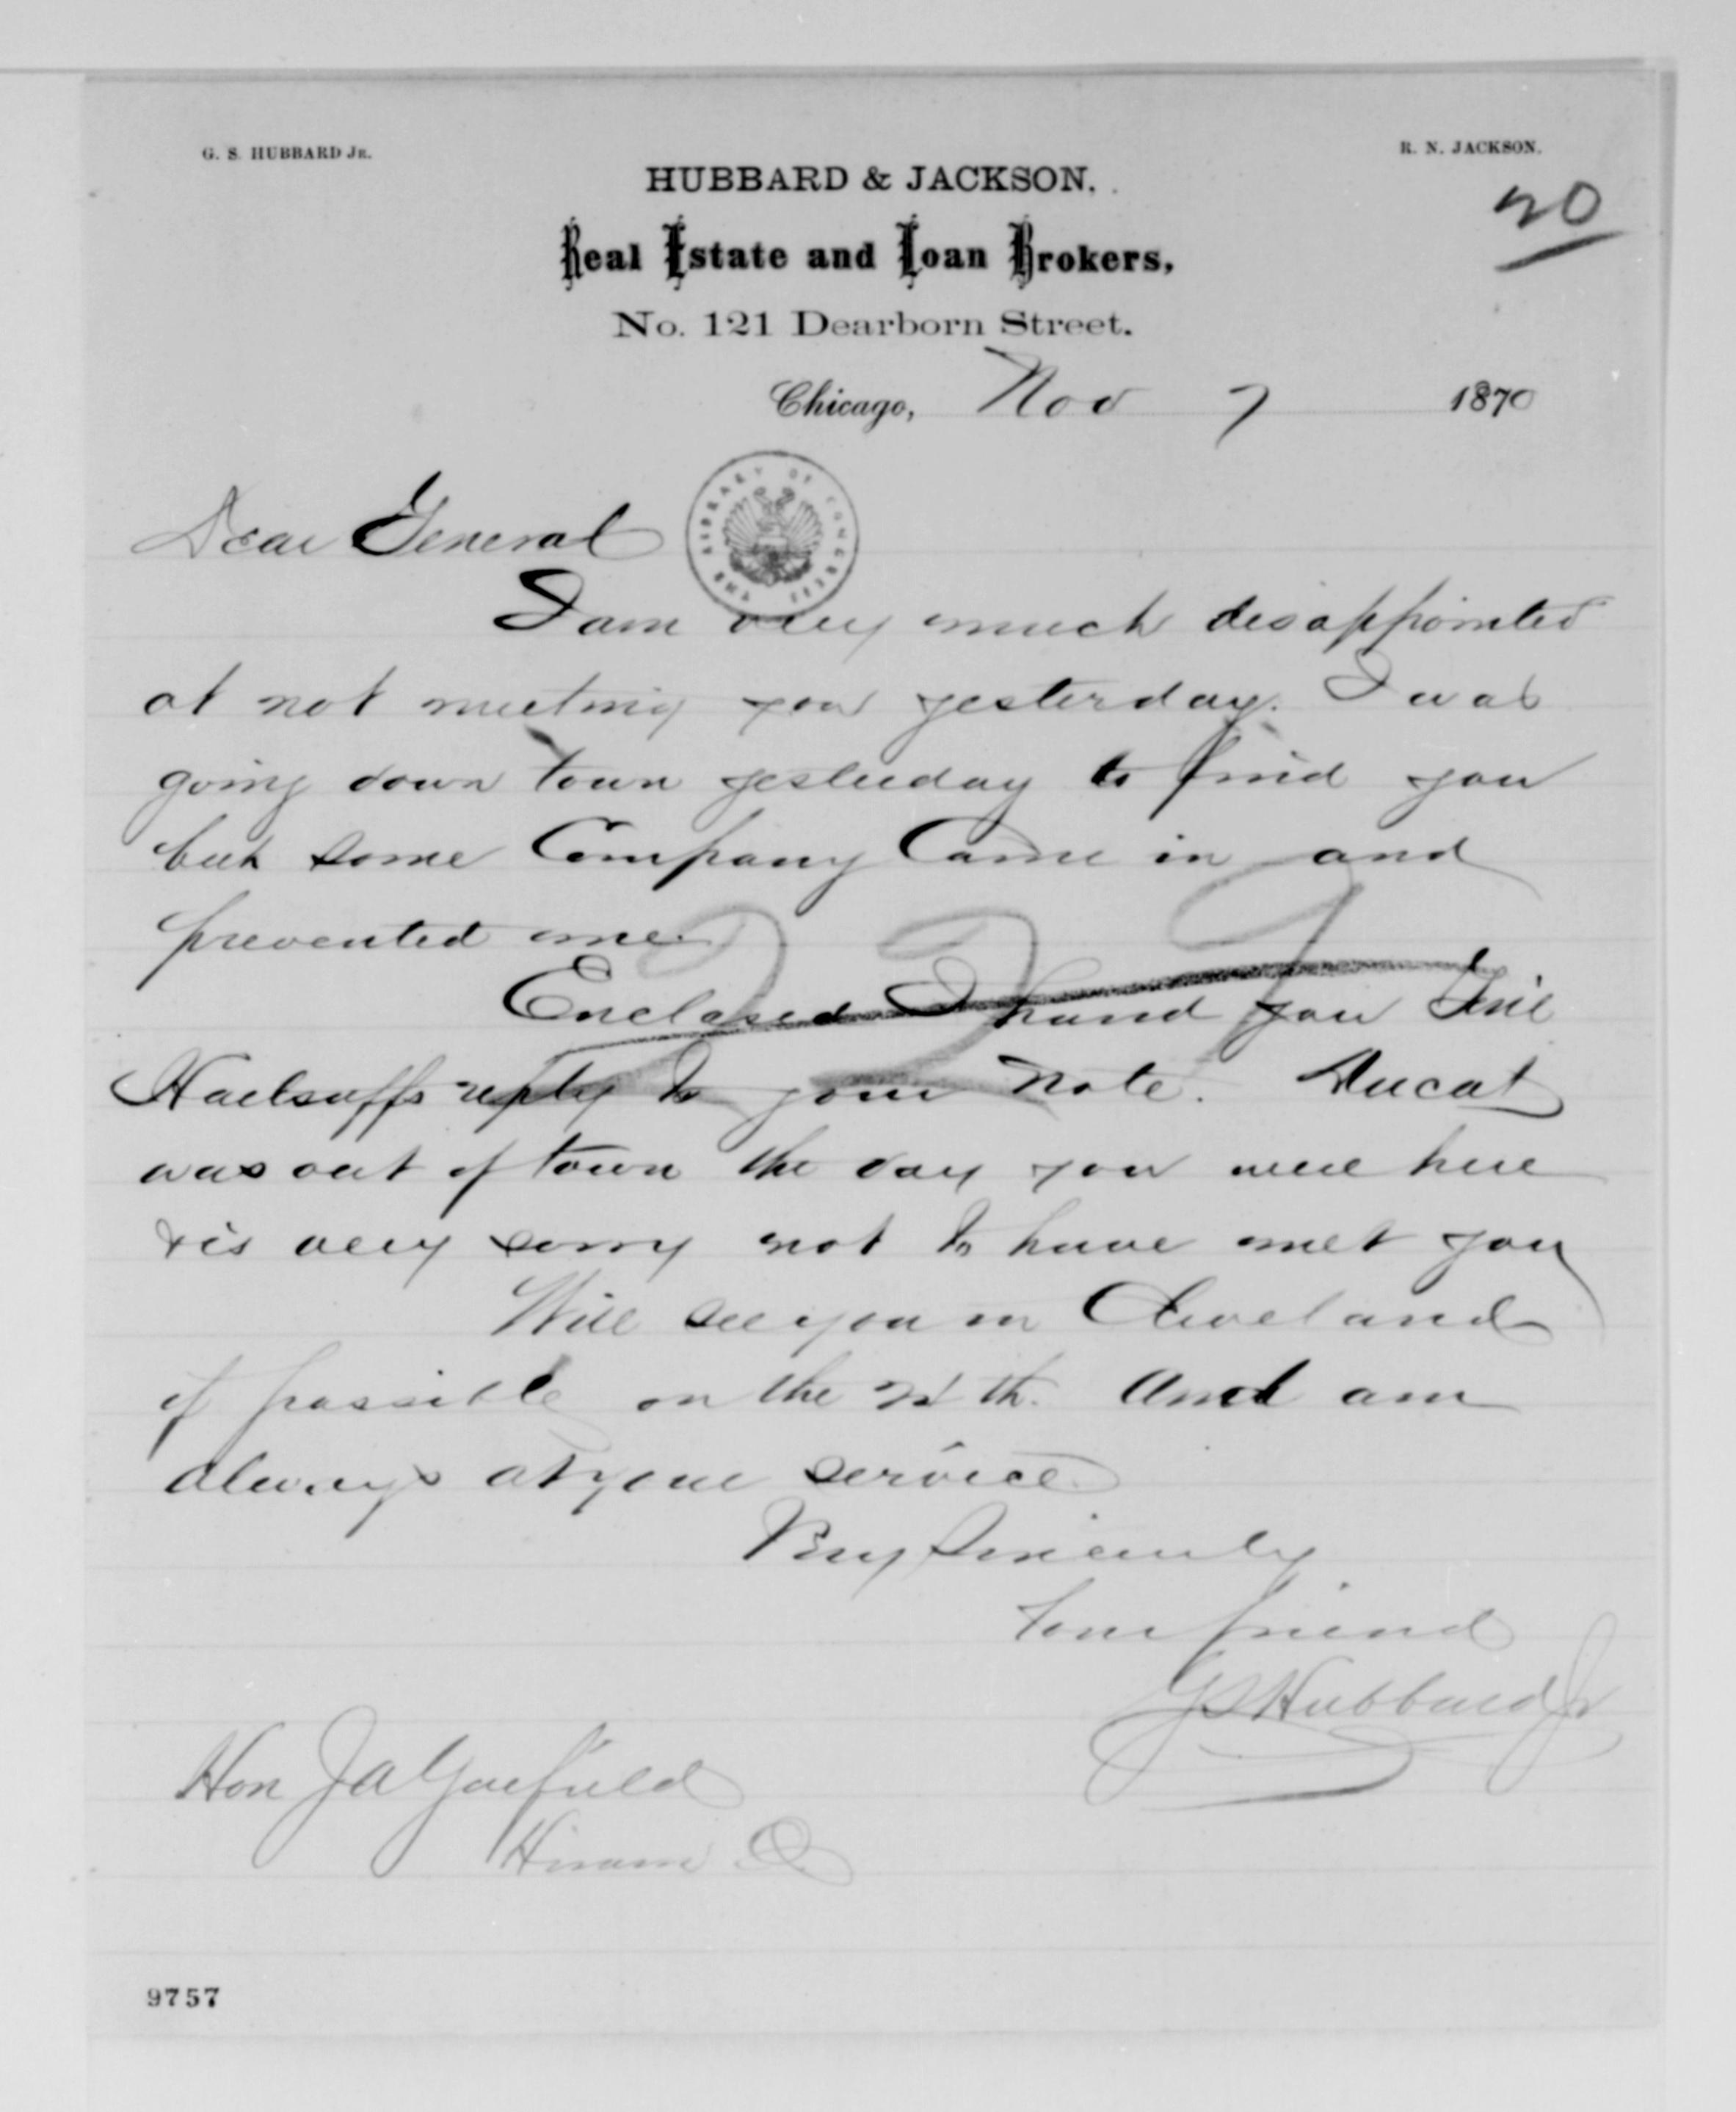 G. S. HUBBARD JR.
R. N. JACKSON.
HUBBARD & JACKSON.
20
Real Estate and Loan Brokers,
No. 121 Dearborn Street.
Chicago, Nov 7 1870
THE LIBRARY OF CONGRESS
Dear General
I am very much disappointed
at not meeting you yesterday. I was
going down town yesterday to find you
but some Company Came in and
prevented me.
229
Enclosed I hand you
reply to your note. Ducat
was out of town the day you were here
& is very sorry not to have met you
Will see you in Cleveland
if possible on the th. And am
always at your service
Very Sincerely
Your friend
G S Hubbard Jr
Hon J A Garfield
Hiram O.
9757